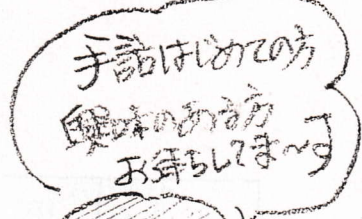 手話はじめての方
興味のある方
お待ちしてま〜す